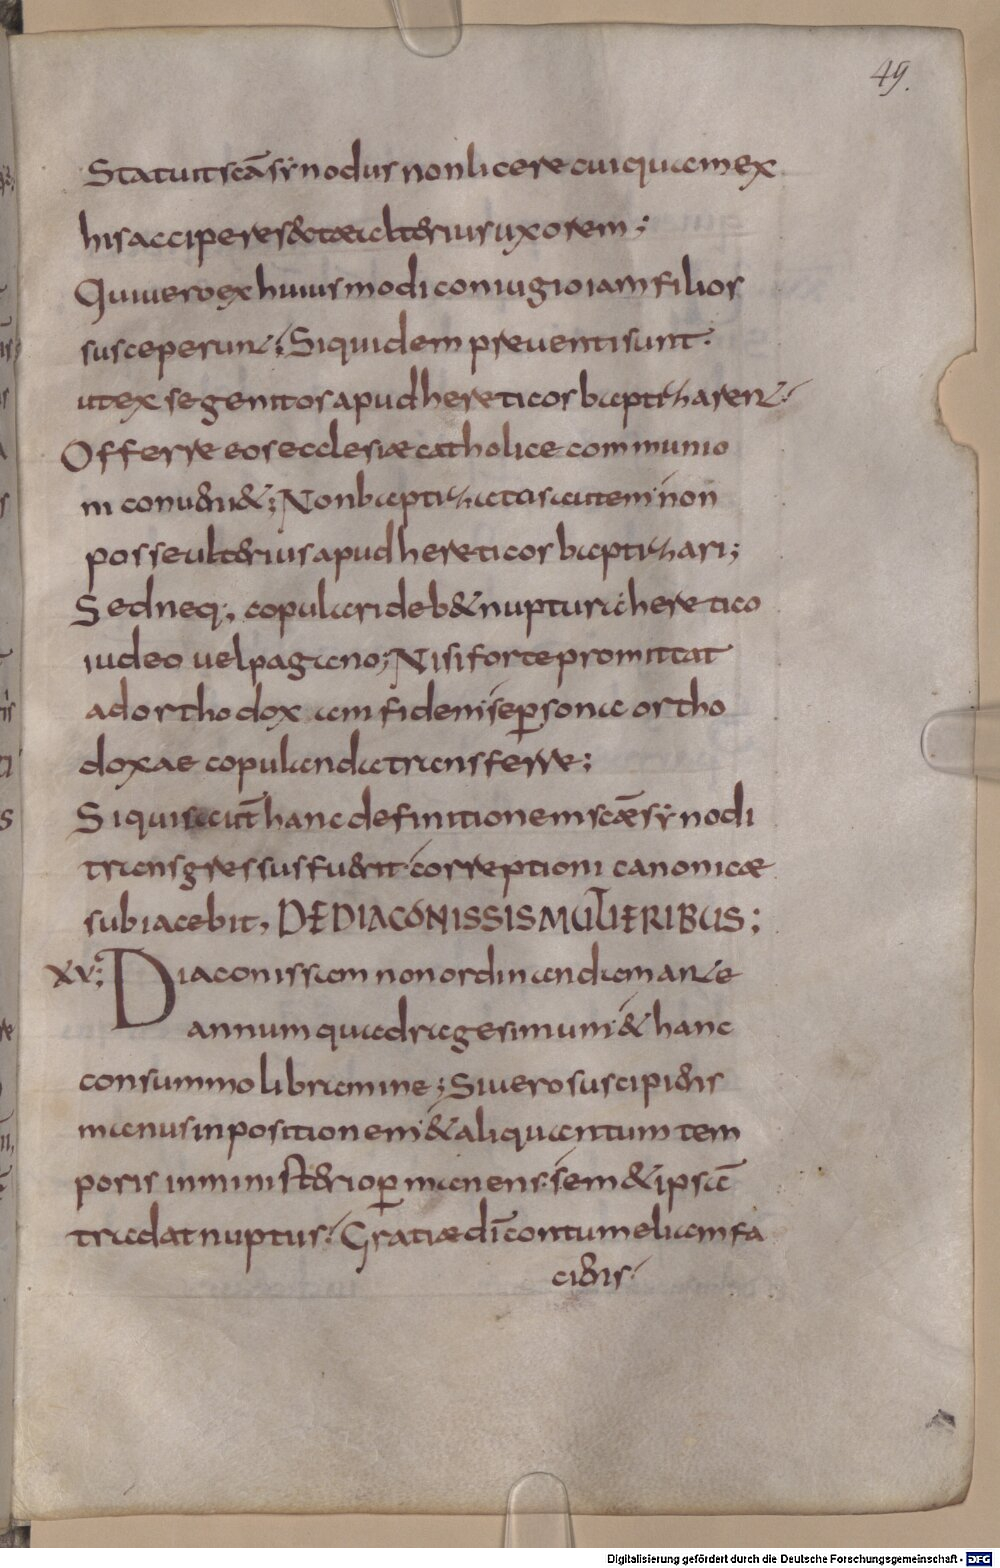 49.
Statuit scā sẏnodus non licere cuiquam ex
his accipere s&ctae ult&rius uxorem;
Qui uero ex huiusmodi coniugio iam filios
susceperunt; Si quidem preuenti sunt.
ut ex se genitos apud hereticos baptizarent.
Offerre eos ecclesiæ catholice communio
ni conuenit; Non baptizatos autem non
posse ulterius apud hereticos baptizari;
Sed neq; copulari deb& nupturā heretico
iudeo uel pagano; Nisi forte promittat
ad orthodoxam fidem se personae ortho
doxae copulandae transferre;
Si quis aūt hanc definitionem scæ sẏnodi
transgressus fuerit. correptioni canonicæ
subiacebit, DE DIACONISSIS MULIERIBUS;
XV; Diaconissam non ordinandam ante
annum quadragesimum & hanc
cum summo libramine; Si uero suscipiens
manus inpositionem & aliquantum tem
poris in ministerio permanens. sem& ipsā
tradat nuptus. Gratiæ dī contumeliam fa
ciens.
Digitalisierung gefördert durch die Deutsche Forschungsgemeinschaft - DFG